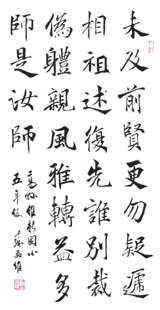 未及前賢更勿疑遞
相祖述復先誰別裁
偽體親風雅轉益多
師是汝師
國小
五年